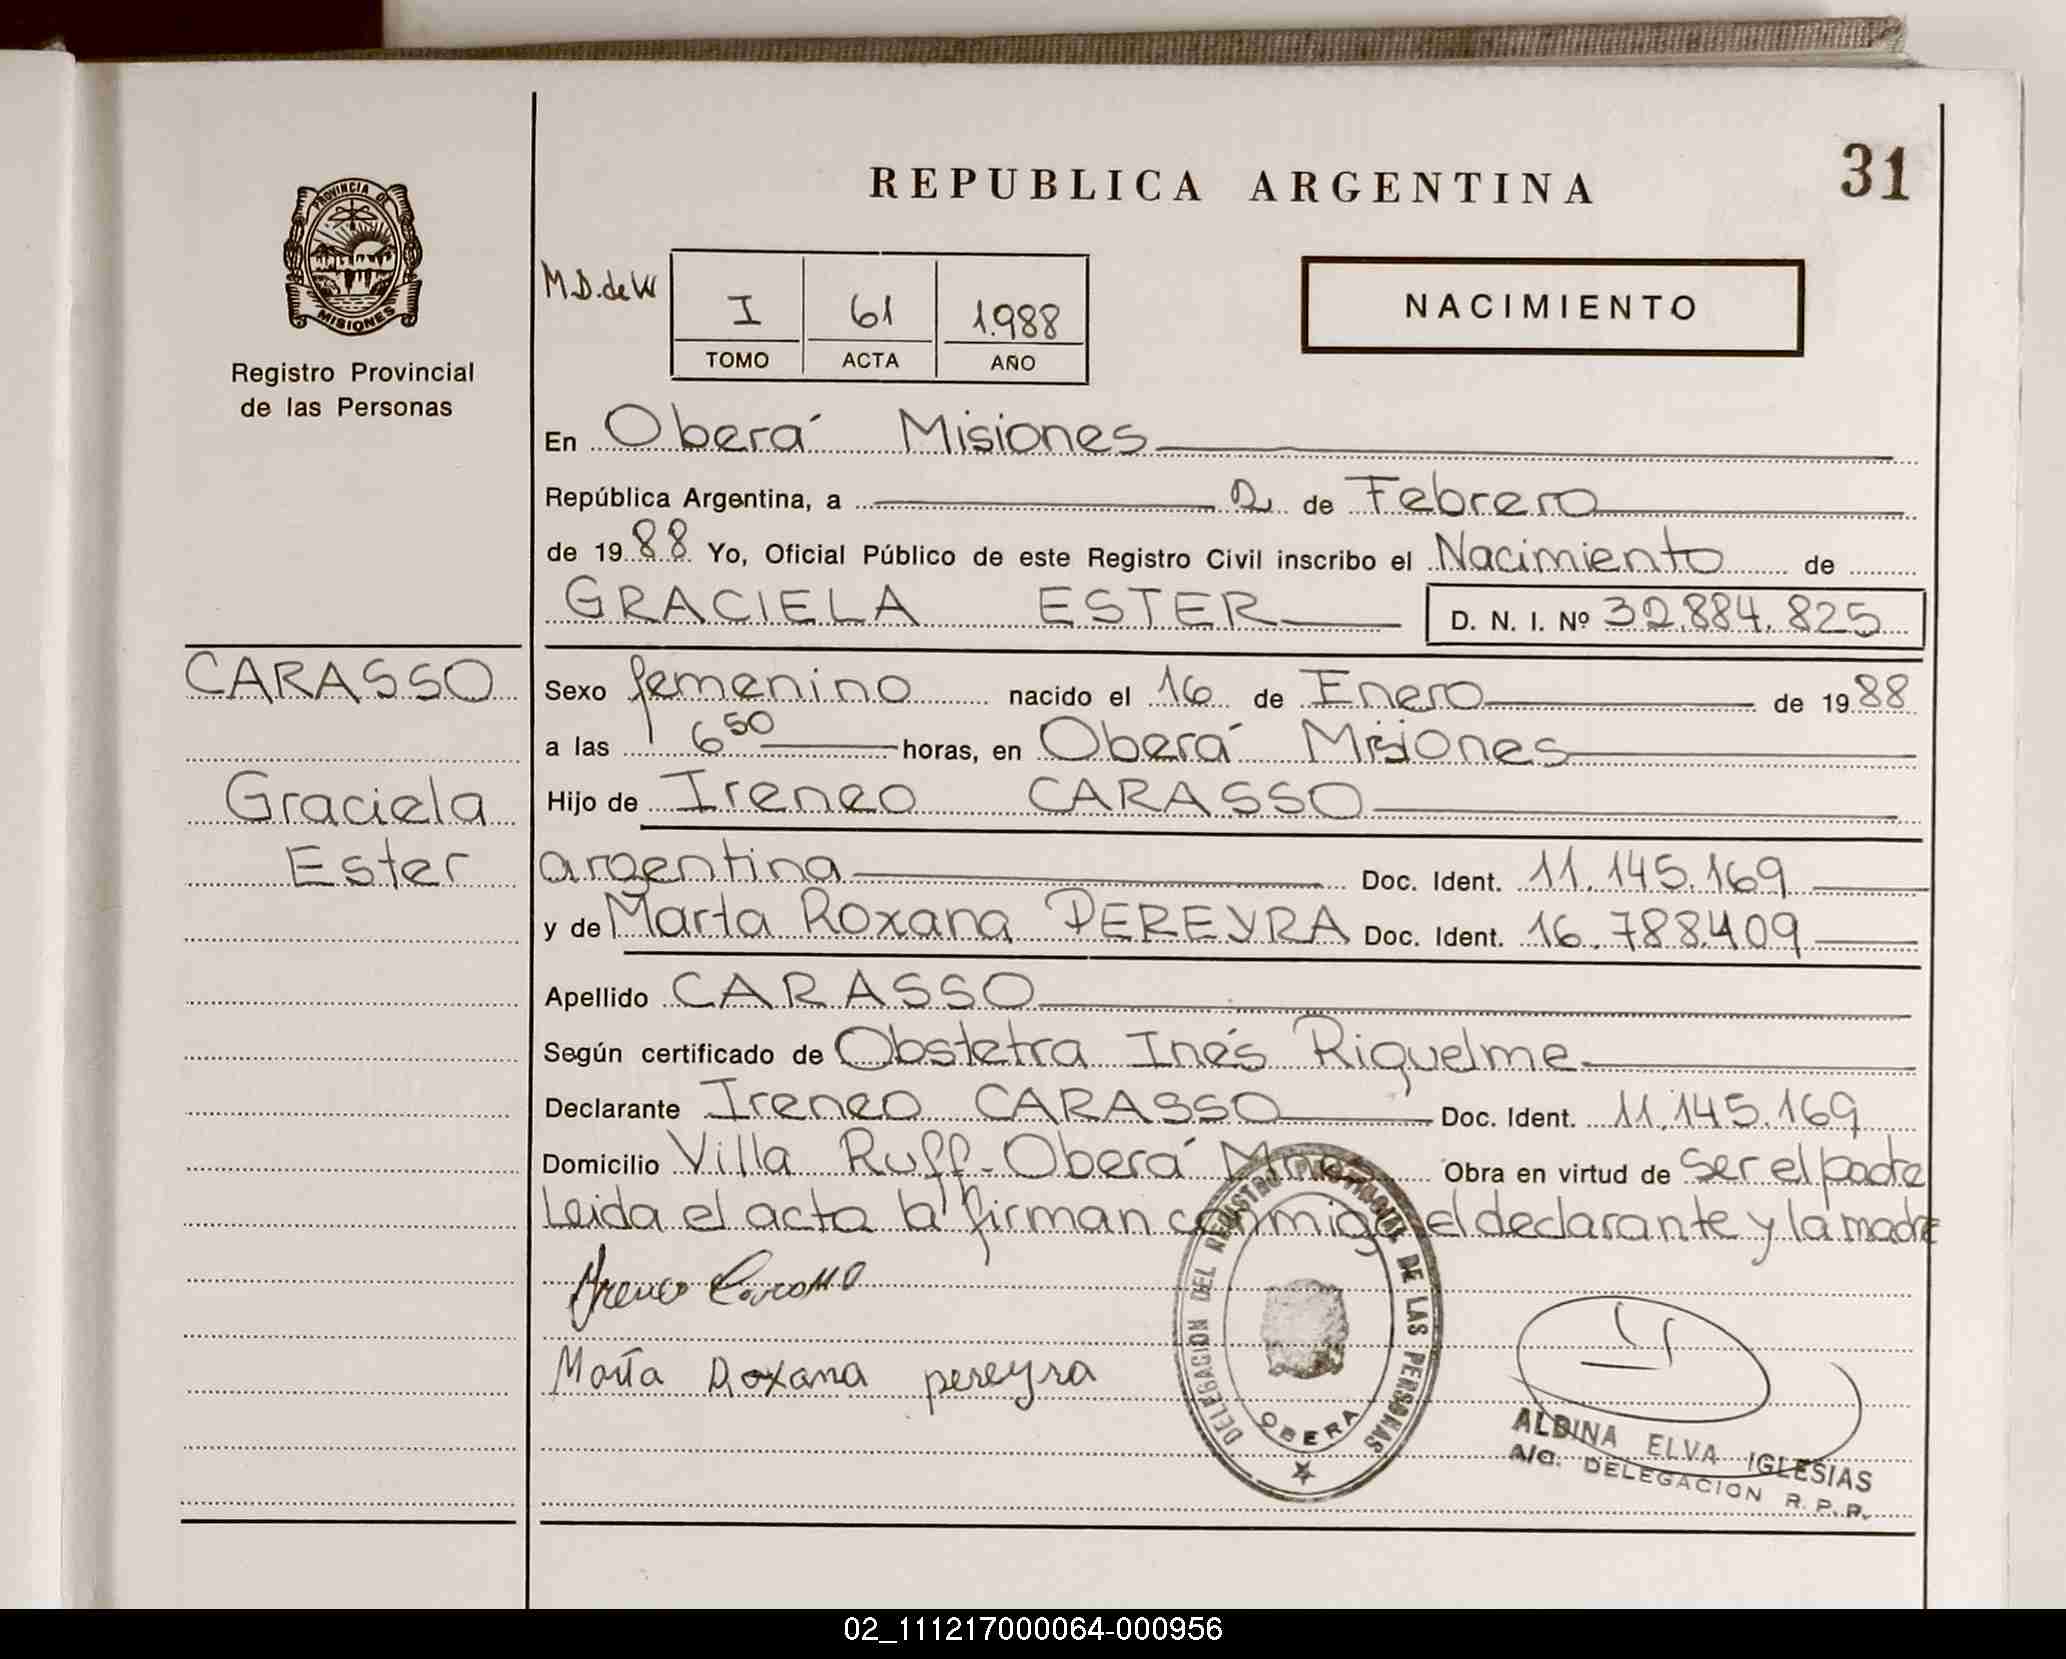 31
REPUBLICA ARGENTINA
PROVINCIA DE
MISIONES
Registro Provincial
de las Personas
M.D. de W
I 61 1.988
TOMO ACTA AÑO
NACIMIENTO
En Oberá Misiones
República Argentina, a 2 de Febrero
de 1988 Yo, Oficial Público de este Registro Civil inscribo el Nacimiento de
GRACIELA ESTER D. N. I. Nº 32.884.825
CARASSO
Graciela
Ester
Sexo femenino nacido el 16 de Enero de 1988
a las 6 50 horas, en Oberá Misiones
Hijo de Ireneo CARASSO
argentina Doc. Ident. 11.145.169
y de Marta Roxana PEREYRA Doc. Ident. 16.788.409
Apellido CARASSO
Según certificado de Obstetra Inés Riquelme
Declarante Ireneo CARASSO Doc. Ident. 11.145.169
Domicilio Villa Ruff-Oberá Mnes Obra en virtud de ser el padre
Leida el acta la firman conmigo el declarante y la madre
Ireneo Carasso
Marta Roxana pereyra
DELEGACION DEL REGISTRO PROVINCIAL DE LAS PERSONAS
OBERA
ALDINA ELVA IGLESIAS
A/C. DELEGACION R.P.P.
02_111217000064-000956